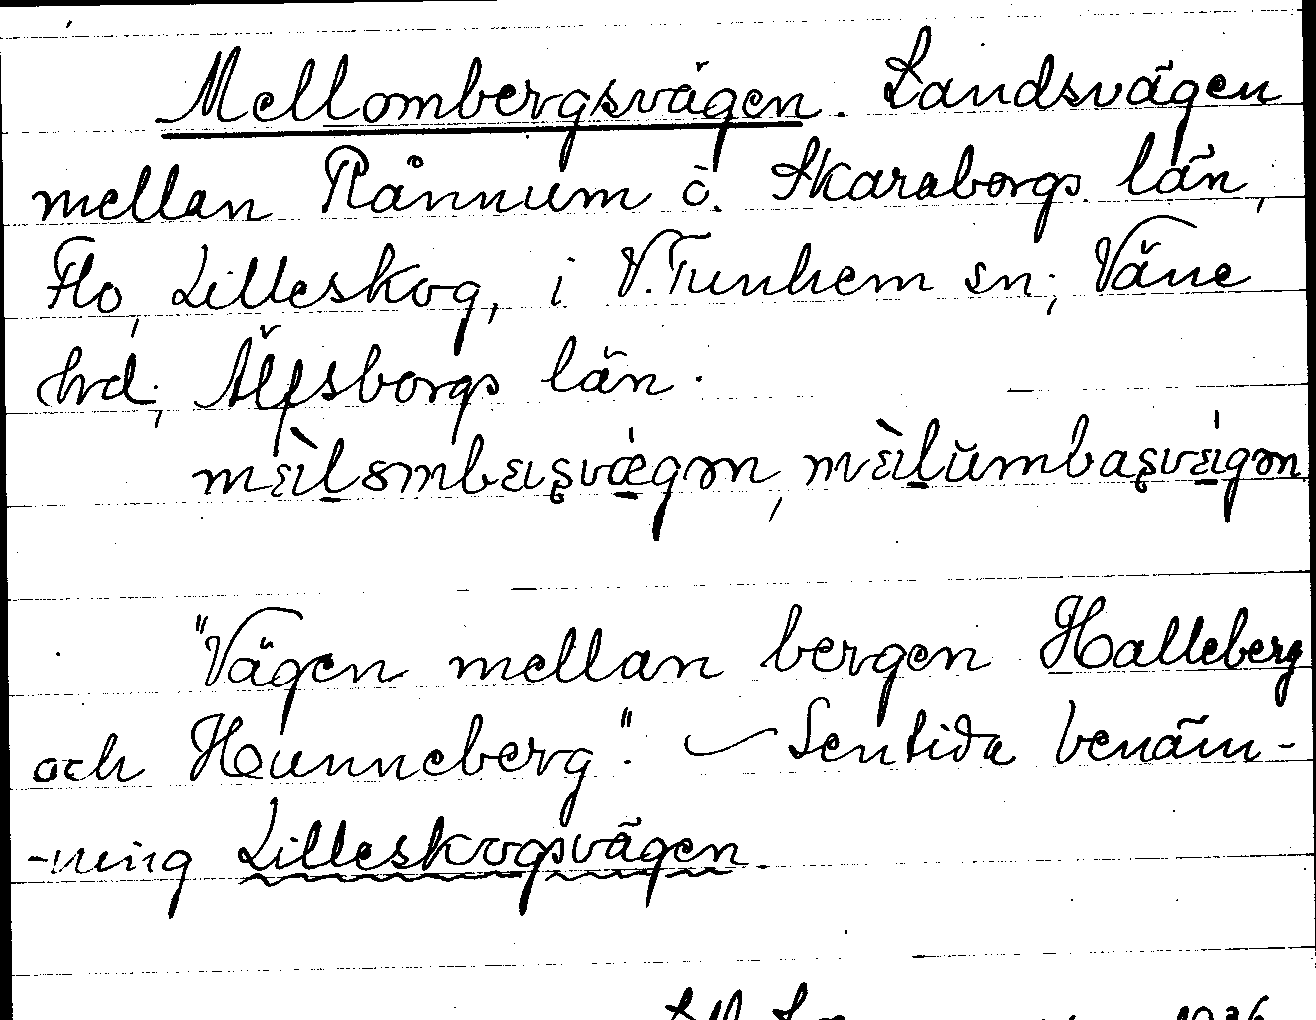 Mellombergsvägen. Landsvägen
mellan Rånnum ö. Skaraborgs län,
Flo, Lilleskog, i V. Tunhem sn; Väne
hrd; Älfsborgs län.
"Vägen mellan bergen Halleberg
och Hunneberg". — Sentida benäm-
-ning Lilleskogsvägen.
1936